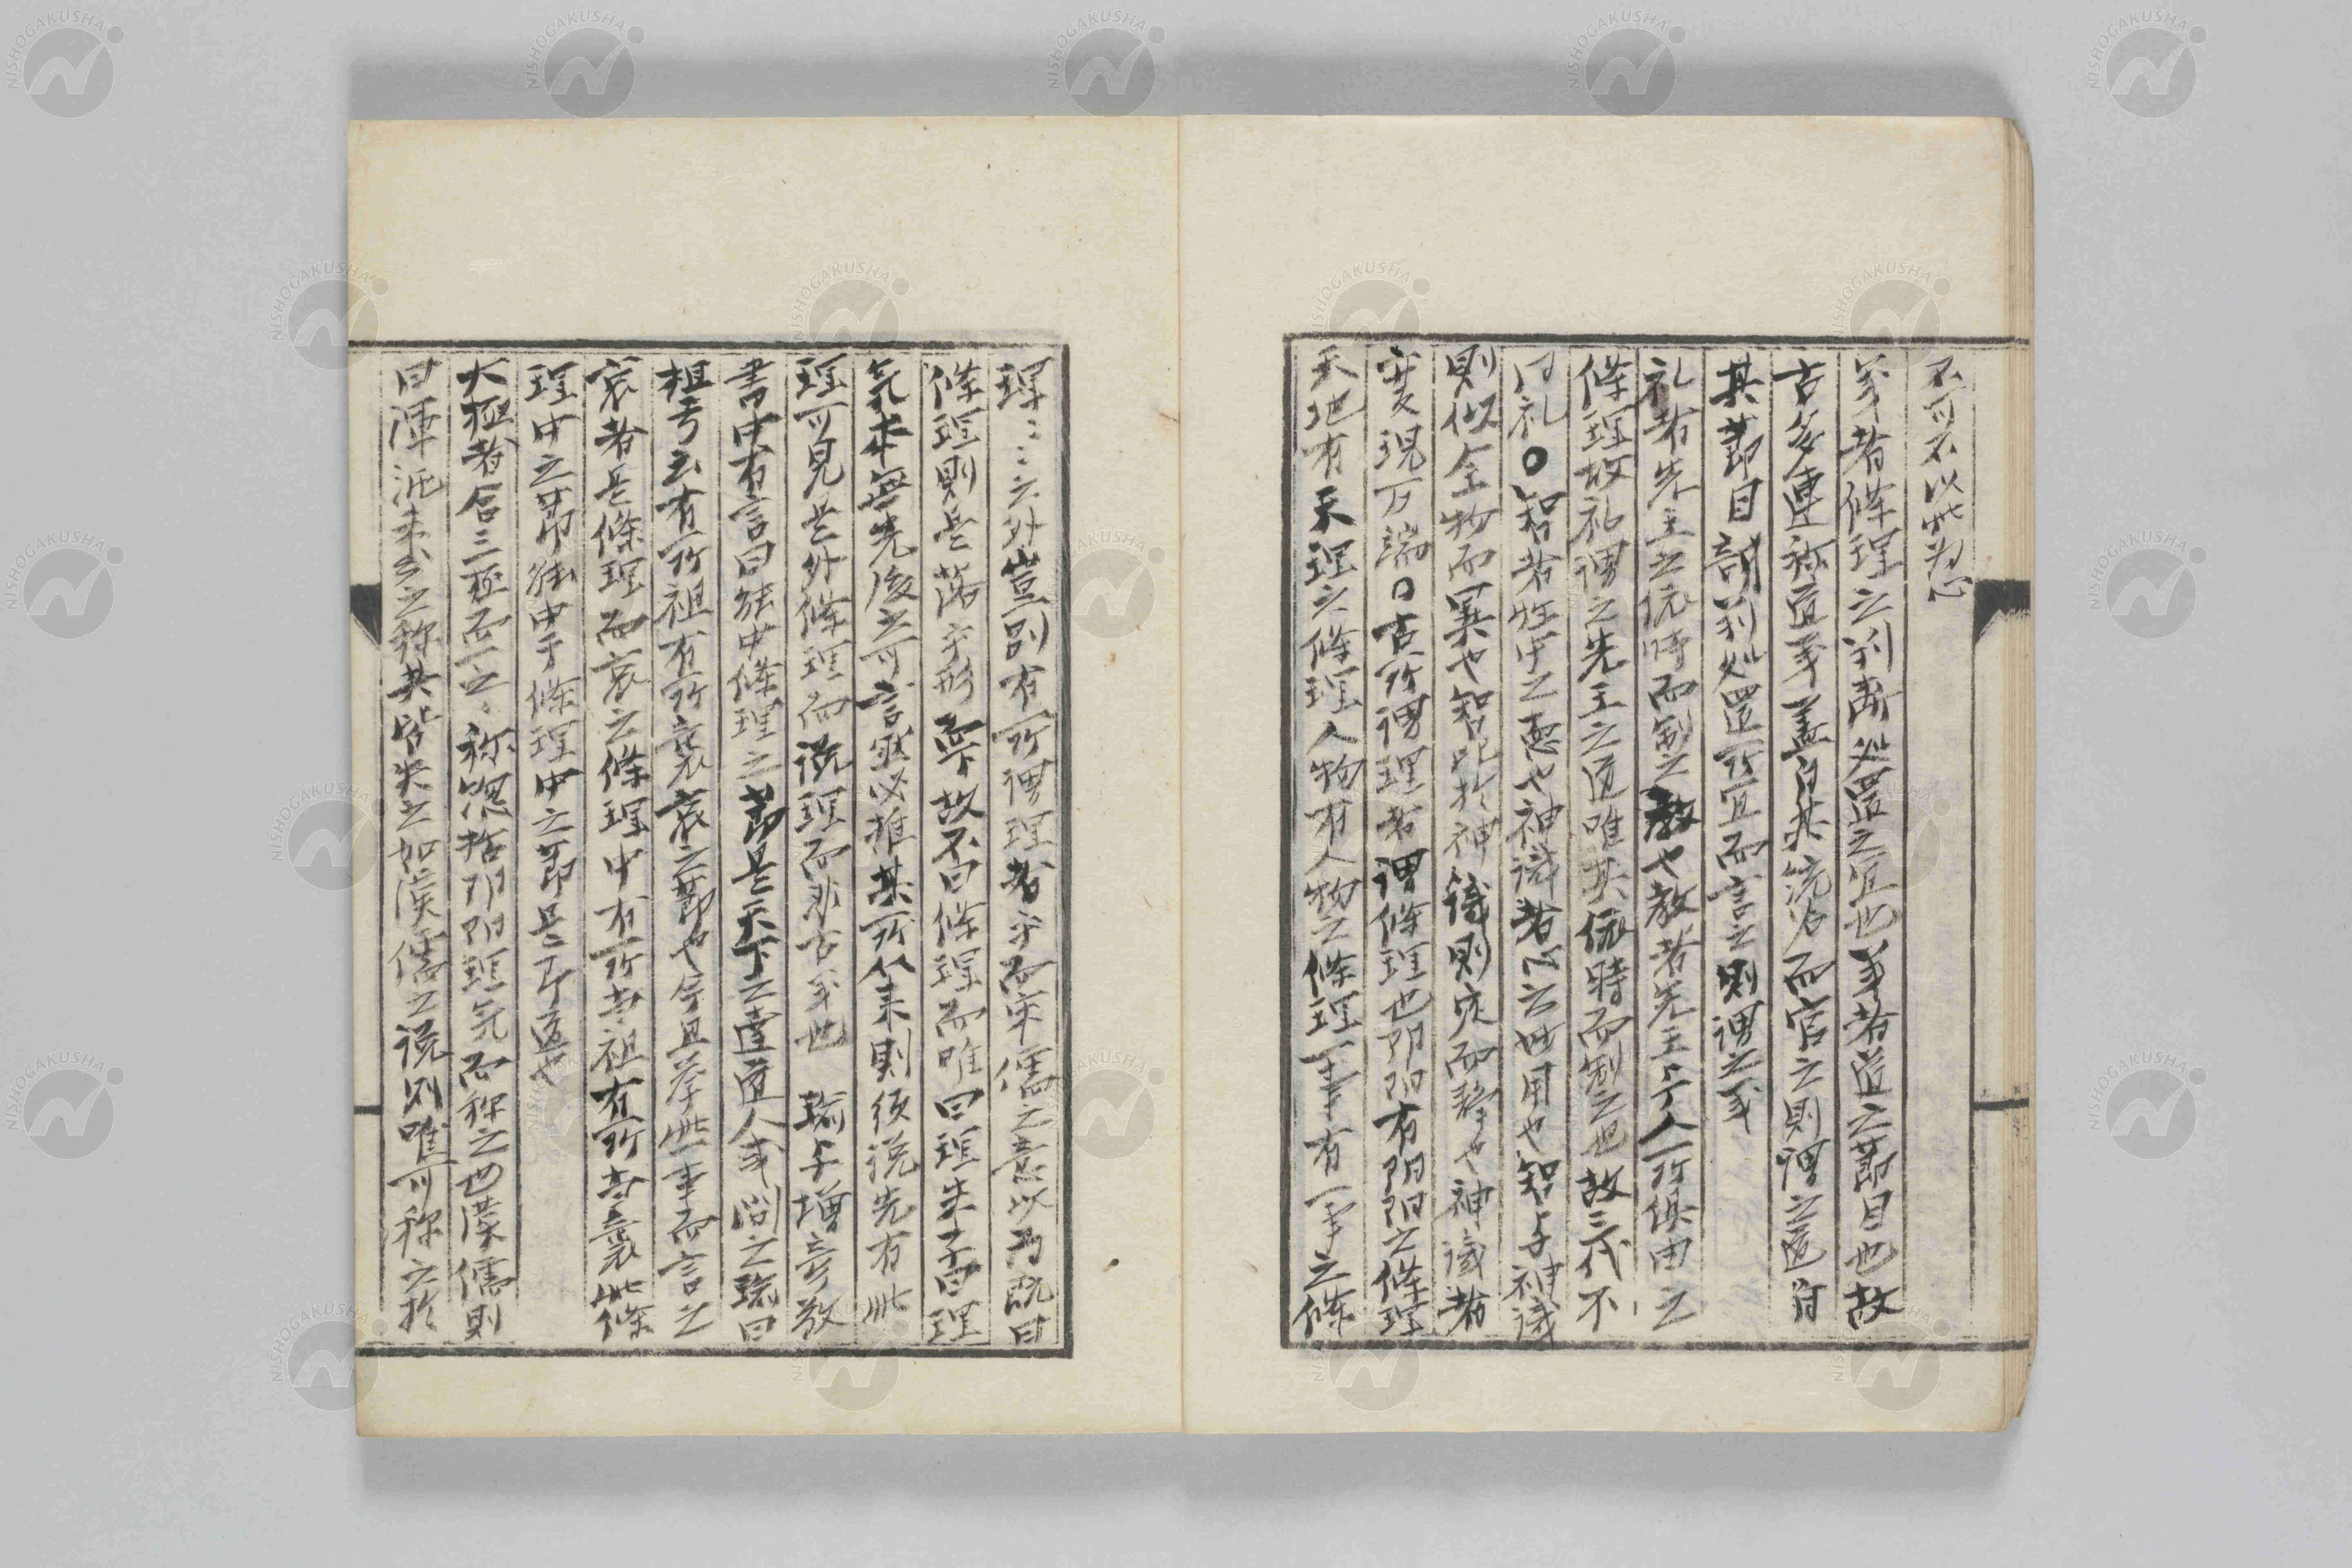 不可不以此為心
義者條理之判斷処置之宜也義者道之節目也故
古多連称道義盖自其統名而官之則謂之道自
其節目剖判処置所宜而言之則謂之義
礼者先王之依時而制之教也教者先王与人所俱由之
條理故礼謂之先王之道唯其依時而制之也故三代不
同礼〇智者性中之悳也神識者心之妙用也智与神識
則似全物而異也智配於神識則寂而静也神識者
変現万端〇古所謂理者謂條理也阴阳有阴阳之條理
天地有天理之條理人物有人物之條理一事有一事之條
理〻〻之外豈別有所謂理者乎而宋儒之意以为既曰
條理則是落乎形器下故不曰條理而唯曰理朱子曰理
氣本無先後之可言然必推其所从来則須説先有此
理可見是外條理而説理而非古義也 瑞与増竒敬
書中有言曰能中條理之節是天下之達道人或問之瑞曰
祖号云有所祖有所哀哀之節也今且挙此一事而言之
哀者是條理而哀之條理中有所当祖有所当哀此條
理中之節能中于條理中之節是即道也
大極者合三極而一之之称總括阴阳理氣而称之也漢儒則
曰渾沌未分之称其皆失之如漢儒之説則唯可称之於